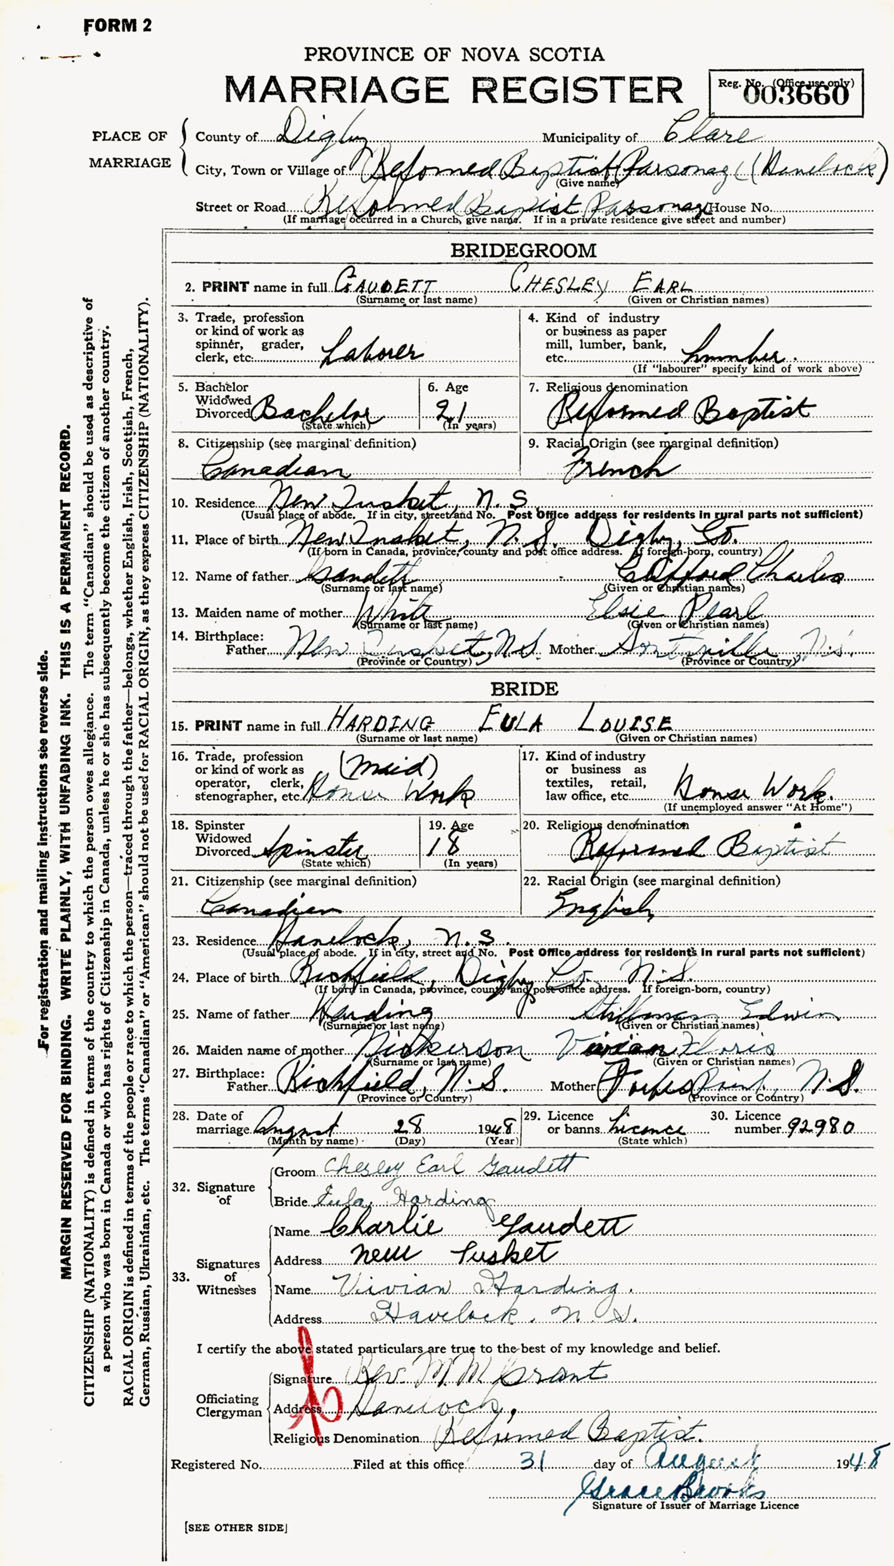 FORM 2
PROVINCE OF NOVA SCOTIA
MARRIAGE REGISTER
Reg. No. (Office use only)
003660
PLACE OF MARRIAGE
County of Digby Municipality of Clare
City, Town or Village of Reformed Baptist Parsonag (Havelock)
(Give name)
Street or Road Reformed Baptist Parsonag House No.
(If marriage occurred in a Church, give name. If in a private residence give street and number)
BRIDEGROOM
2. PRINT name in full GAUDETT CHESLEY EARL
(Surname or last name) (Given or Christian names)
3. Trade, profession or kind of work as spinner, grader, clerk, etc. Laborer
4. Kind of industry or business as paper mill, lumber, bank, etc. Lumber.
(If "labourer" specify kind of work above)
5. Bachelor Widowed Divorced Bachelor
(State which)
6. Age 21
(In years)
7. Religious denomination
Reformed Baptist
8. Citizenship (see marginal definition)
Canadian
9. Racial Origin (see marginal definition)
French
10. Residence New Tusket, N.S.
(Usual place of abode. If in city, street and No. Post Office address for residents in rural parts not sufficient)
11. Place of birth New Tusket, N.S. Digby, Co.
(If born in Canada, province, county and post office address. If foreign-born, country)
12. Name of father Gaudett Clifford Charles
(Surname or last name) (Given or Christian names)
13. Maiden name of mother White Elsie Pearl
(Surname or last name) (Given or Christian names)
14. Birthplace:
Father New Tusket, N.S. Mother N.S.
(Province or Country) (Province or Country)
BRIDE
15. PRINT name in full HARDING EULA LOUISE
(Surname or last name) (Given or Christian names)
16. Trade, profession or kind of work as operator, clerk, stenographer, etc. (maid) House Work
17. Kind of industry or business as textiles, retail, law office, etc. House Work.
(If unemployed answer "At Home")
18. Spinster Widowed Divorced Spinster
(State which)
19. Age 18
(In years)
20. Religious denomination
Reformed Baptist
21. Citizenship (see marginal definition)
Canadian
22. Racial Origin (see marginal definition)
English
23. Residence Havelock, N.S.
(Usual place of abode. If in city, street and No. Post Office address for residents in rural parts not sufficient)
24. Place of birth Richfield, Digby Co. N.S.
(If born in Canada, province, county and post office address. If foreign-born, country)
25. Name of father Harding Stillman Edwin
(Surname or last name) (Given or Christian names)
26. Maiden name of mother Nickerson Vivian Floris
(Surname or last name) (Given or Christian names)
27. Birthplace:
Father Richfield, N.S. Mother Forbes Point, N.S.
(Province or Country) (Province or Country)
28. Date of marriage August 28 1948
(Month by name) (Day) (Year)
29. Licence or banns Licence
(State which)
30. Licence number 92980
32. Signature of
Groom Chesley Earl Gaudett
Bride Eula Harding
33. Signatures of Witnesses
Name Charlie Gaudett
Address New Tusket
Name Vivian Harding.
Address Havelock. N S.
I certify the above stated particulars are true to the best of my knowledge and belief.
Officiating Clergyman
Signature Rev. M M Grant
Address Havelock,
Religious Denomination Reformed Baptist.
Registered No. Filed at this office 31 day of August 1948
Grace Brooks
Signature of Issuer of Marriage Licence
[SEE OTHER SIDE]
For registration and mailing instructions see reverse side.
MARGIN RESERVED FOR BINDING. WRITE PLAINLY, WITH UNFADING INK. THIS IS A PERMANENT RECORD.
CITIZENSHIP (NATIONALITY) is defined in terms of the country to which the person owes allegiance. The term "Canadian" should be used as descriptive of
a person who was born in Canada or who has rights of Citizenship in Canada, unless he or she has subsequently become the citizen of another country.
RACIAL ORIGIN is defined in terms of the people or race to which the person—traced through the father—belongs, whether English, Irish, Scottish, French,
German, Russian, Ukrainian, etc. The terms "Canadian" or "American" should not be used for RACIAL ORIGIN, as they express CITIZENSHIP (NATIONALITY).